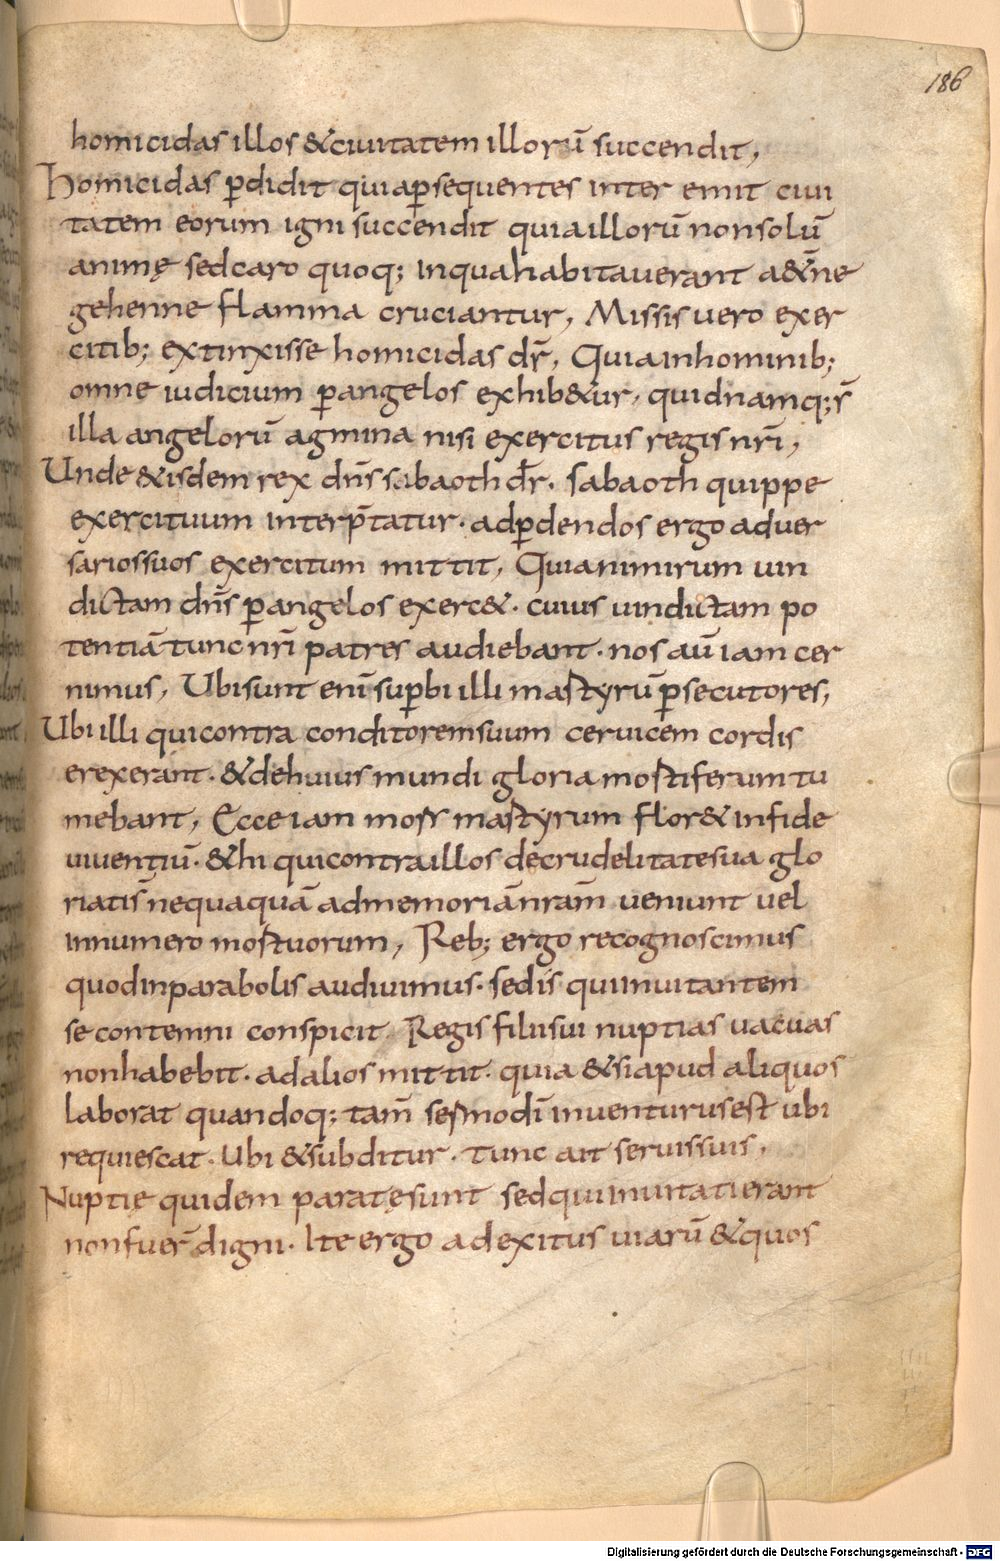 186
homicidas illos &ciuitatem illorū succendit,
Homicidas ꝑdidit quiaꝑsequentes inter emit ciui
tatem eorum igni succendit quiaillorū nonsolū
animę sedcaro quoq; inquahabitauerant a&̄ne
gehenne flamma cruciantur, Missis uero exer
citib; extinxisse homicidas dr̄, Quiainhominib;
omne iudicium ꝑangelos exhib&ur, quidnamq; s̄
illa angelorū agmina nisi exercitus regis nr̄i,
Unde &isdem rex dn̄s sabaoth dr̄. sabaoth quippe
exercituum interp̄tatur. adꝑdendos ergo aduer
sariossuos exercitum mittit, Quianimirum uin
dictam dn̄s ꝑangelos exerc&. cuius uindictam po
tentiā tunc nr̄i patres audiebant. nos aū iam cer
nimus, Ubisunt enī suꝑbi illi martyrū ꝑsecutores,
Ubi illi quicontra conditoremsuum ceruicem cordis
erexerant. &dehuius mundi gloria mortiferum tu
mebant, Ecce iam mors martyrum flor& infide
uiuentiū. &hi quicontraillos decrudelitatesua glo
riatis̄ nequaquā admemoriā nram̄ ueniunt uel
innumero mortuorum, Reb; ergo recognoscimus
quodinparabolis audiuimus. sedis quiinuitantem
se contemni conspicit. Regis filiisui nuptias uacuas
nonhabebit. adalios mittit. quia &siapud aliquos
laborat quandoq; tam̄ sermodī inuenturusest ubi
requiescat. Ubi &subditur. Tunc ait seruissuis,
Nuptię quidem paratęsunt sedquiinuitatierant
nonfuer̄ digni. Ite ergo adexitus uiarū &quos
Digitalisierung gefördert durch die Deutsche Forschungsgemeinschaft - DFG